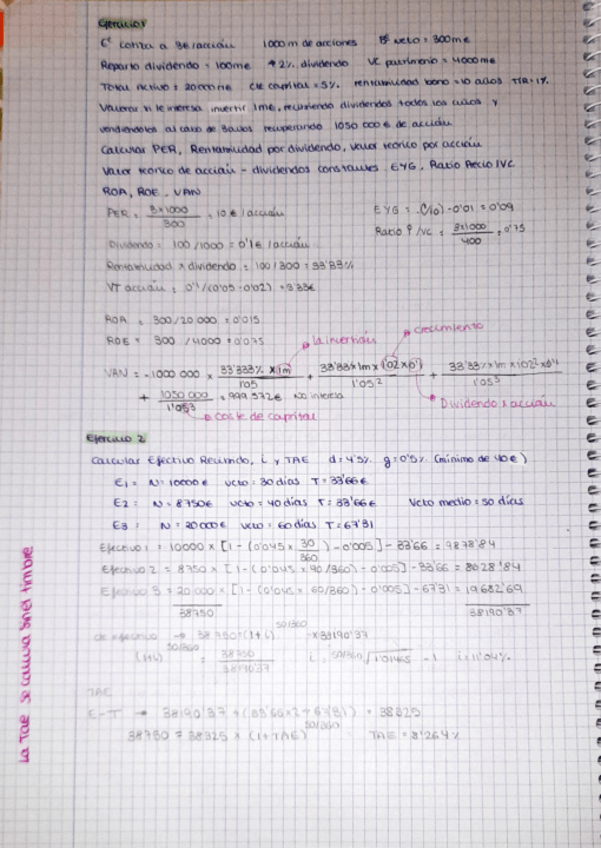 Ejercicio 1
Cº cotiza a 3€/acción 1000 m de acciones Bº neto = 300 m€
Reparto dividendo = 100 m€ + 2% dividendo VC patrimonio = 4000 m€
Total Activo = 20000 m€ Cte capital = 5% rentabilidad bono = 10 años TIR = 1%
Valorar si le interesa invertir 1m€, recibiendo dividendos todos los años y
vendiéndolos al cabo de 3 años recuperando 1050 000 € de acción
Calcular PER, Rentabilidad por dividendo, valor teórico por acción
Valor teórico de acción - dividendos constantes. EYG, Ratio Precio/VC
ROA, ROE, VAN
PER = 3x1000 / 300 = 10€/acción
EYG = (1/10) - 0'01 = 0'09
Dividendo = 100/1000 = 0'1€/acción
Ratio P/VC = 3x1000 / 400 = 0'75
Rentabilidad x dividendo = 100/300 = 33'33%
VT acción = 0'1/(0'05 - 0'02) = 3'33€
ROA = 300/20 000 = 0'015
ROE = 300/4000 = 0'075
la inversión
crecimiento
VAN = -1000 000 x 33'333% x 1m / 1'05 + 33'33% x 1m x (1'02 x 0') / 1'05² + 33'33% x 1m x 102² x 0'1 / 1'05³
+ 1050 000 / 1'05³ = 999 572€ No interesa
coste de capital
Dividendo x acción
Ejercicio 2
Calcular Efectivo Recibido, i y TAE d = 4'5% g = 0'5% (mínimo de 40€)
E1 = N = 10000€ vcto = 30 días T = 33'66€
E2 = N = 8750€ vcto = 40 días T = 33'66€ Vcto medio = 50 días
E3 = N = 20000€ vcto = 60 días T = 67'31
Efectivo 1 = 10000 x [1 - (0'045 x 30/360) - 0'005] - 33'66 = 9878'84
Efectivo 2 = 8750 x [1 - (0'045 x 40/360) - 0'005] - 33'66 = 8628'84
Efectivo 3 = 20 000 x [1 - (0'045 x 60/360) - 0'005] - 67'31 = 19682'69
38750 38190'37
cte efectivo → 38 750 = (1+i)^50/360 x 38190'37
(1+i)^50/360 = 38750 / 38190'37 i = 50/360√1'01465 - 1 i = 11'04%
TAE
E-T → 38190'37 + (33'66 x 2 + 67'31) = 38325
38750 = 38325 x (1+TAE)^50/360 TAE = 8'264%
La TAE se calcula sin el timbre